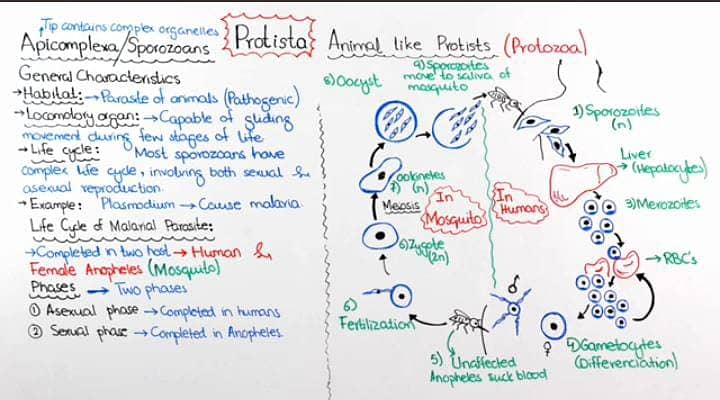 Tip contains complex organelles
Apicomplexa/Sporozoans
Protista
Animal like Protists (Protozoa)
General Characteristics
→Habitat:→Parasite of animals (Pathogenic)
→Locomotory organ:→Capable of gliding
movement during few stages of life
→Life cycle: Most sporozoans have
complex life cycle, involving both sexual &
asexual reproduction.
→Example: Plasmodium → Cause malaria.
Life Cycle of Malarial Parasite:
→Completed in two host → Human &
Female Anopheles (Mosquito)
Phases → Two phases
① Asexual phase → Completed in humans
② Sexual phase → Completed in Anopheles
9) Sporozoites
move to saliva of
mosquito
8) Oocyst
1) Sporozoites
(n)
Liver
→(Hepatocytes)
3) Merozoites
→RBC's
4) Gametocytes
(Differenciation)
♂
♀
5) Unaffected
Anopheles suck blood
6)
Fertilization
6) Zygote
(2n)
Meiosis
Ookinetes
7) (n)
In
Mosquito
In
Humans